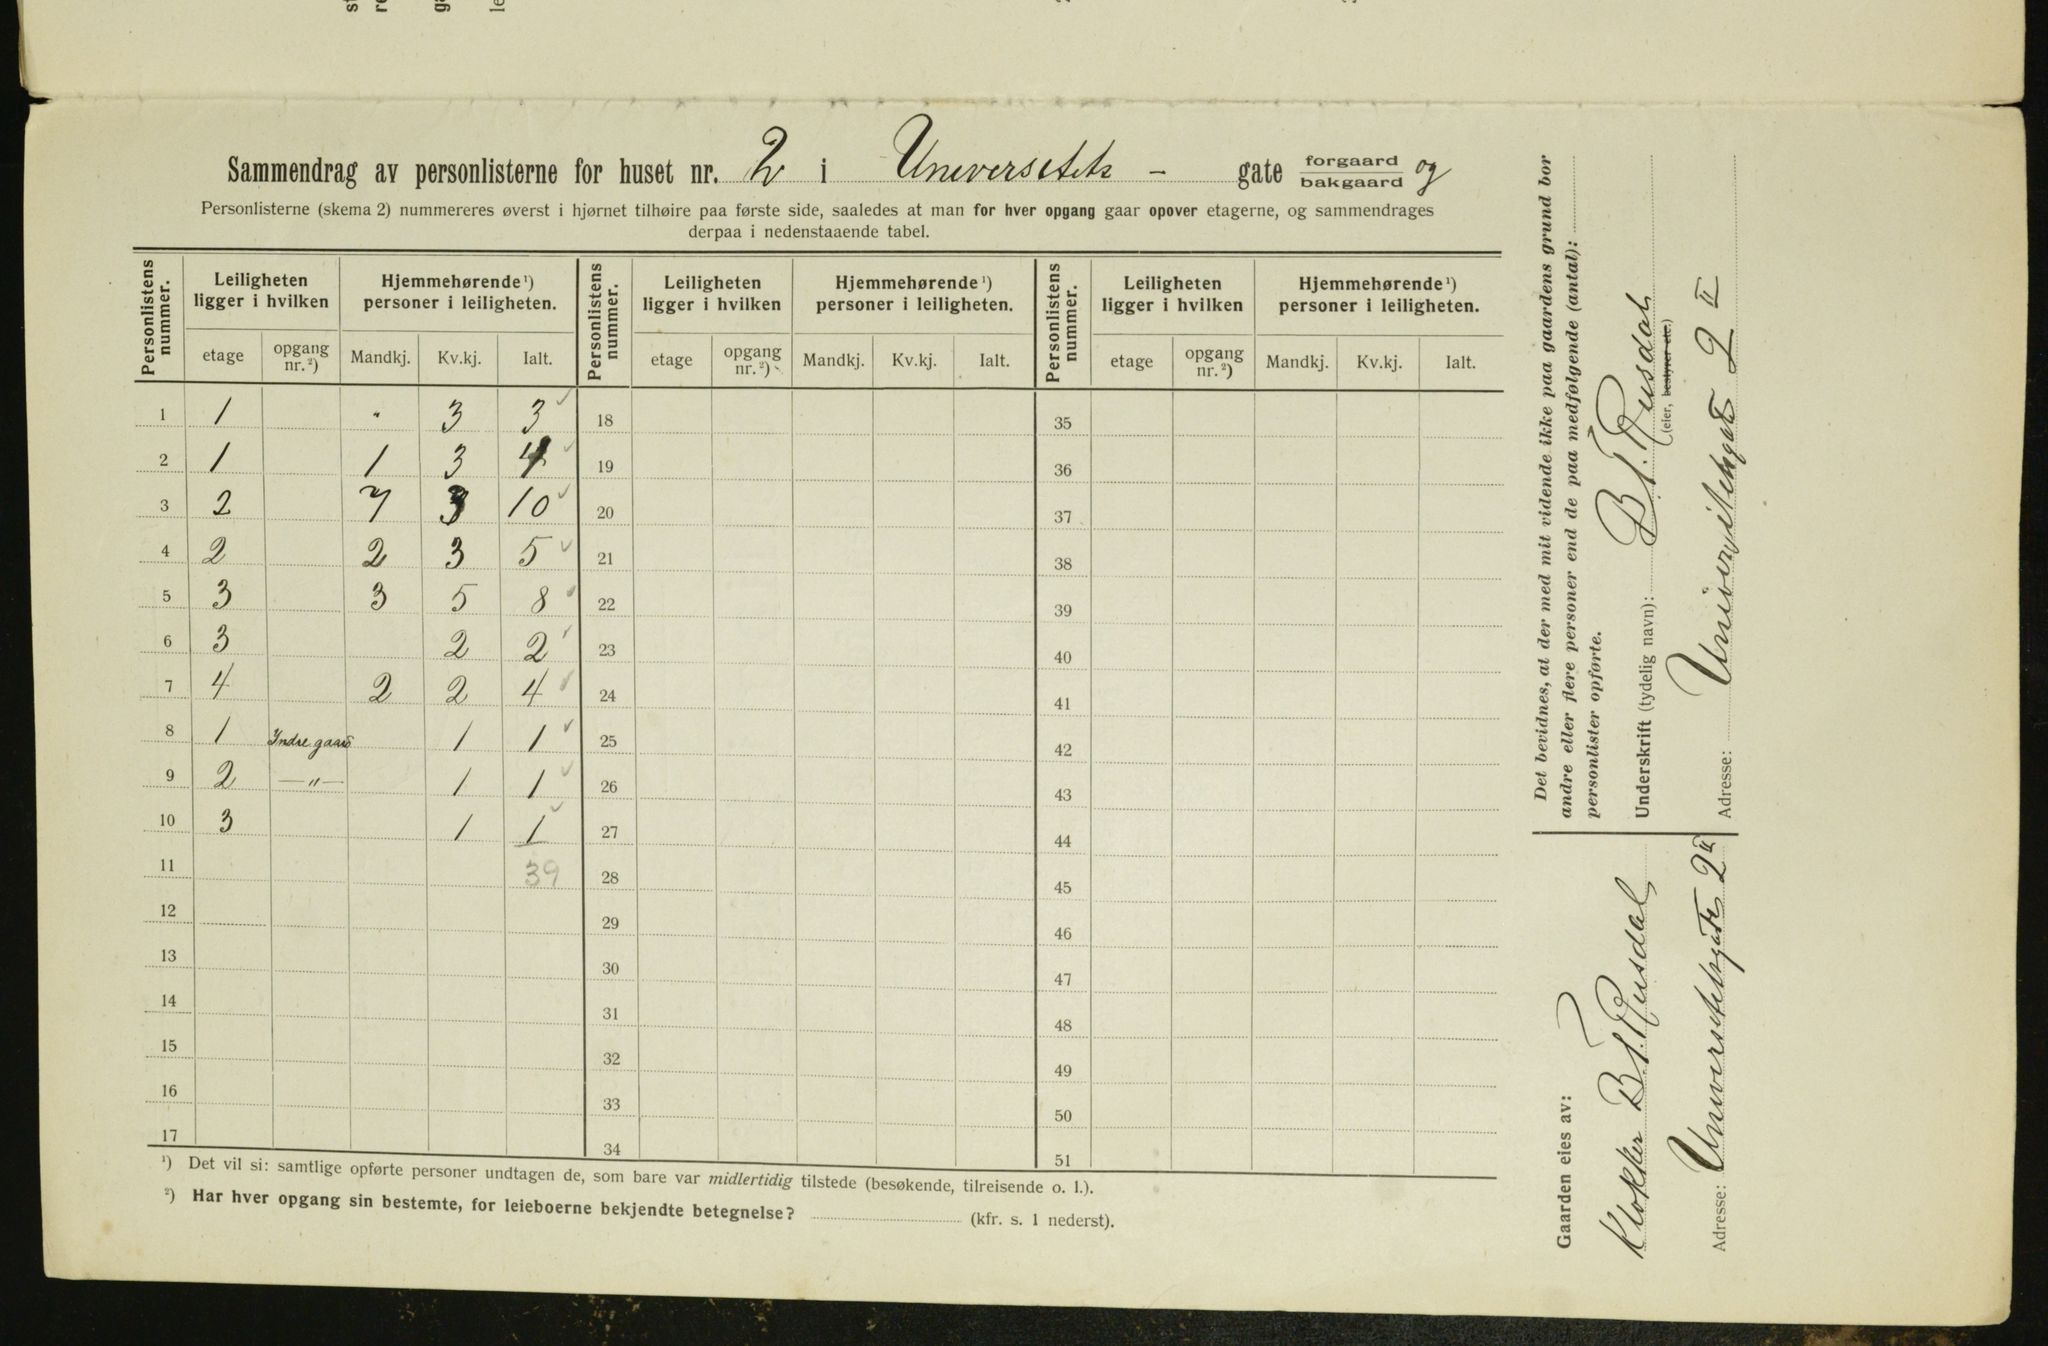 Sammendrag av personlisterne for huset nr. 2 i Universitets - gate forgaard og
bakgaard
Personlisterne (skema 2) nummereres øverst i hjørnet tilhøire paa første side, saaledes at man for hver opgang gaar opover etagerne, og sammendrages
derpaa i nedenstaaende tabel.
Personlistens nummer. Leiligheten ligger i hvilken Hjemmehørende ¹) personer i leiligheten. Personlistens nummer. Leiligheten ligger i hvilken Hjemmehørende ¹) personer i leiligheten. Personlistens nummer. Leiligheten ligger i hvilken Hjemmehørende ¹) personer i leiligheten.
etage opgang nr. ²) Mandkj. Kv.kj. Ialt. etage opgang nr. ²) Mandkj. Kv.kj. Ialt. etage opgang nr. ²) Mandkj. Kv.kj. Ialt.
1 1 " 3 3 18 35
2 1 1 3 4 19 36
3 2 7 3 10 20 37
4 2 2 3 5 21 38
5 3 3 5 8 22 39
6 3 2 2 23 40
7 4 2 2 4 24 41
8 1 Indre gaard 1 1 25 42
9 2 —"— 1 1 26 43
10 3 1 1 27 44
11 39 28 45
12 29 46
13 30 47
14 31 48
15 32 49
16 33 50
17 34 51
¹) Det vil si: samtlige opførte personer undtagen de, som bare var midlertidig tilstede (besøkende, tilreisende o. l.).
²) Har hver opgang sin bestemte, for leieboerne bekjendte betegnelse? (kfr. s. 1 nederst).
Det bevidnes, at der med mit vidende ikke paa gaardens grund bor
andre eller flere personer end de paa medfølgende (antal):
personlister opførte.
Underskrift (tydelig navn): B. J. Rusdal
(eier, bestyrer etc.)
Adresse: Universitetsgate 2 II
Gaarden eies av:
Klokker B. J. Rusdal
Adresse: Universitetsgate 2 II